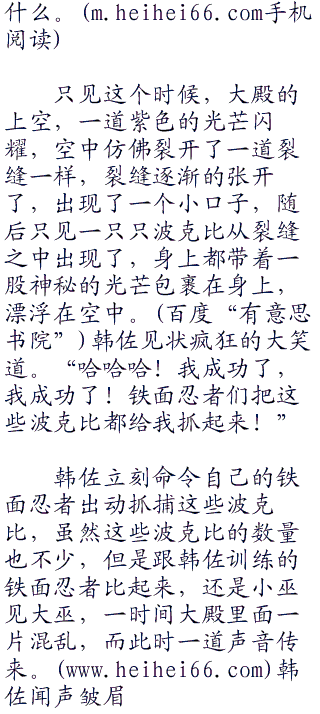 什么。(m.heihei66.com手机
阅读)
只见这个时候，大殿的
上空，一道紫色的光芒闪
耀，空中仿佛裂开了一道裂
缝一样，裂缝逐渐的张开
了，出现了一个小口子，随
后只见一只只波克比从裂缝
之中出现了，身上都带着一
股神秘的光芒包裹在身上，
漂浮在空中。(百度“有意思
书院”)韩佐见状疯狂的大笑
道。“哈哈哈！我成功了，
我成功了！铁面忍者们把这
些波克比都给我抓起来！”
韩佐立刻命令自己的铁
面忍者出动抓捕这些波克
比，虽然这些波克比的数量
也不少，但是跟韩佐训练的
铁面忍者比起来，还是小巫
见大巫，一时间大殿里面一
片混乱，而此时一道声音传
来。(www.heihei66.com)韩
佐闻声皱眉